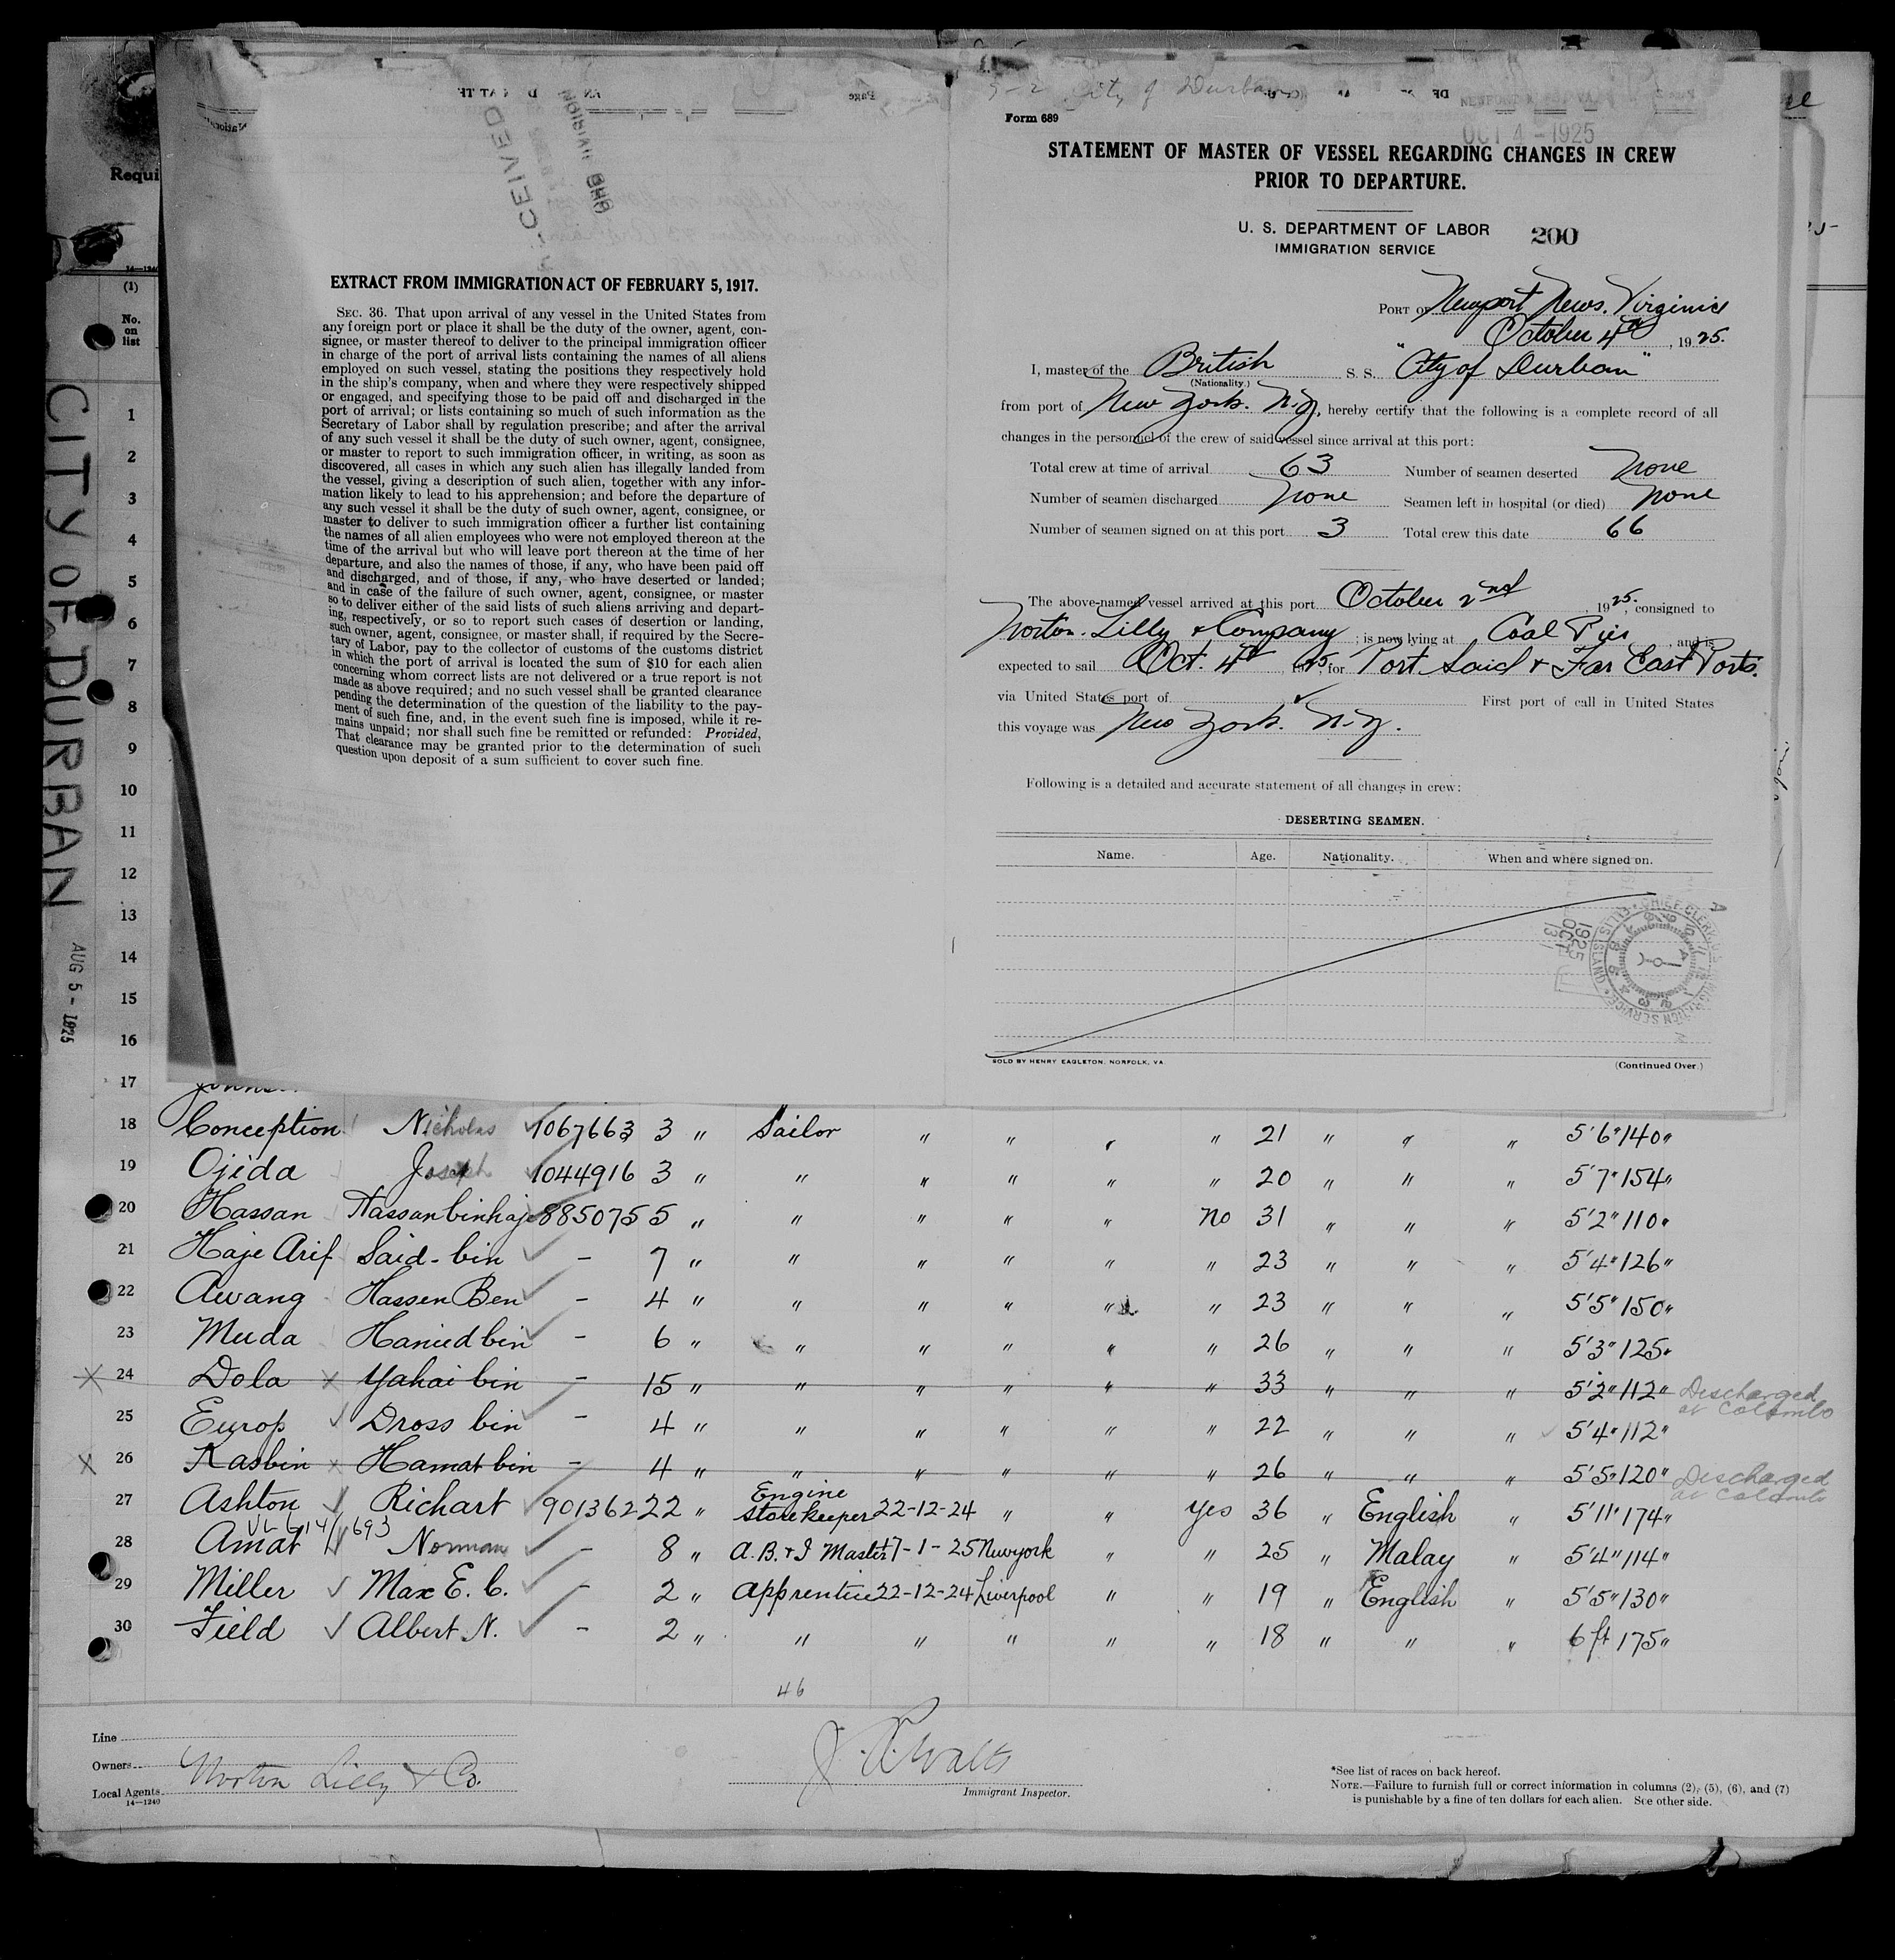 City of Durban
OCT 4 - 1925
Form 689
STATEMENT OF MASTER OF VESSEL REGARDING CHANGES IN CREW
PRIOR TO DEPARTURE.
U. S. DEPARTMENT OF LABOR
IMMIGRATION SERVICE
200
PORT OF Newport News. Virginia
October 4th, 1925.
I, master of the British S. S. "City of Durban"
(Nationality.)
from port of New York. N.Y., hereby certify that the following is a complete record of all
changes in the personnel of the crew of said vessel since arrival at this port:
Total crew at time of arrival 63 Number of seamen deserted None
Number of seamen discharged None Seamen left in hospital (or died) None
Number of seamen signed on at this port 3 Total crew this date 66
The above-named vessel arrived at this port October 2nd 1925, consigned to
Norton. Lilly & Company; is now lying at Coal Pier and is
expected to sail Oct. 4th, 1925, for Port Said & Far East Ports.
via United States port of First port of call in United States
this voyage was New York. N.Y.
Following is a detailed and accurate statement of all changes in crew:
DESERTING SEAMEN.
Name. Age. Nationality. When and where signed on.
1925
OCT
13
SOLD BY HENRY EAGLETON, NORFOLK, VA.
(Continued Over.)
EXTRACT FROM IMMIGRATION ACT OF FEBRUARY 5, 1917.
SEC. 36. That upon arrival of any vessel in the United States from
any foreign port or place it shall be the duty of the owner, agent, con-
signee, or master thereof to deliver to the principal immigration officer
in charge of the port of arrival lists containing the names of all aliens
employed on such vessel, stating the positions they respectively hold
in the ship's company, when and where they were respectively shipped
or engaged, and specifying those to be paid off and discharged in the
port of arrival; or lists containing so much of such information as the
Secretary of Labor shall by regulation prescribe; and after the arrival
of any such vessel it shall be the duty of such owner, agent, consignee,
or master to report to such immigration officer, in writing, as soon as
discovered, all cases in which any such alien has illegally landed from
the vessel, giving a description of such alien, together with any infor-
mation likely to lead to his apprehension; and before the departure of
any such vessel it shall be the duty of such owner, agent, consignee, or
master to deliver to such immigration officer a further list containing
the names of all alien employees who were not employed thereon at the
time of the arrival but who will leave port thereon at the time of her
departure, and also the names of those, if any, who have been paid off
and discharged, and of those, if any, who have deserted or landed;
and in case of the failure of such owner, agent, consignee, or master
so to deliver either of the said lists of such aliens arriving and depart-
ing, respectively, or so to report such cases of desertion or landing,
such owner, agent, consignee, or master shall, if required by the Secre-
tary of Labor, pay to the collector of customs of the customs district
in which the port of arrival is located the sum of $10 for each alien
concerning whom correct lists are not delivered or a true report is not
made as above required; and no such vessel shall be granted clearance
pending the determination of the question of the liability to the pay-
ment of such fine, and, in the event such fine is imposed, while it re-
mains unpaid; nor shall such fine be remitted or refunded: Provided,
That clearance may be granted prior to the determination of such
question upon deposit of a sum sufficient to cover such fine.
Requi
(1)
No.
on
list
CITY OF DURBAN
AUG 5 - 1925
1
2
3
4
5
6
7
8
9
10
11
12
13
14
15
16
17
18 Conception Nicholas 1067663 3 " Sailor " " " " 21 " " " 5'6" 140"
19 Ojida Joseph 1044916 3 " " " " " " 20 " " " 5'7" 154"
20 Hassan Hassanbinhaje 885075 5 " " " " " no 31 " " " 5'2" 110"
21 Haje Arif Said-bin - 7 " " " " " " 23 " " " 5'4" 126"
22 Awang Hassen Ben - 4 " " " " " " 23 " " " 5'5" 150"
23 Muda Hamed bin - 6 " " " " " " 26 " " " 5'3" 125"
24 Dola Yahai bin - 15 " " " " " " 33 " " " 5'2" 112" Discharged at Colombo
25 Europ Dross bin - 4 " " " " " " 22 " " " 5'4" 112"
26 Kasbin Hamat bin - 4 " " " " " " 26 " " " 5'5" 120" Discharged at Colombo
27 Ashton Richart 901362 22 " Engine Storekeeper 22-12-24 " " Yes 36 " English " 5'11" 174"
28 Amat Norman - 8 " A.B. & I Master 17-1-25 Newyork " " 25 " Malay " 5'4" 114"
29 Miller Max E. C. - 2 " Apprentice 22-12-24 Liverpool " " 19 " English " 5'5" 130"
30 Field Albert N. - 2 " " " " " " 18 " " " 6 ft 175"
46
Line
Owners
Local Agents Norton Lilly & Co.
14—1240
Immigrant Inspector.
*See list of races on back hereof.
NOTE.—Failure to furnish full or correct information in columns (2), (5), (6), and (7)
is punishable by a fine of ten dollars for each alien. See other side.